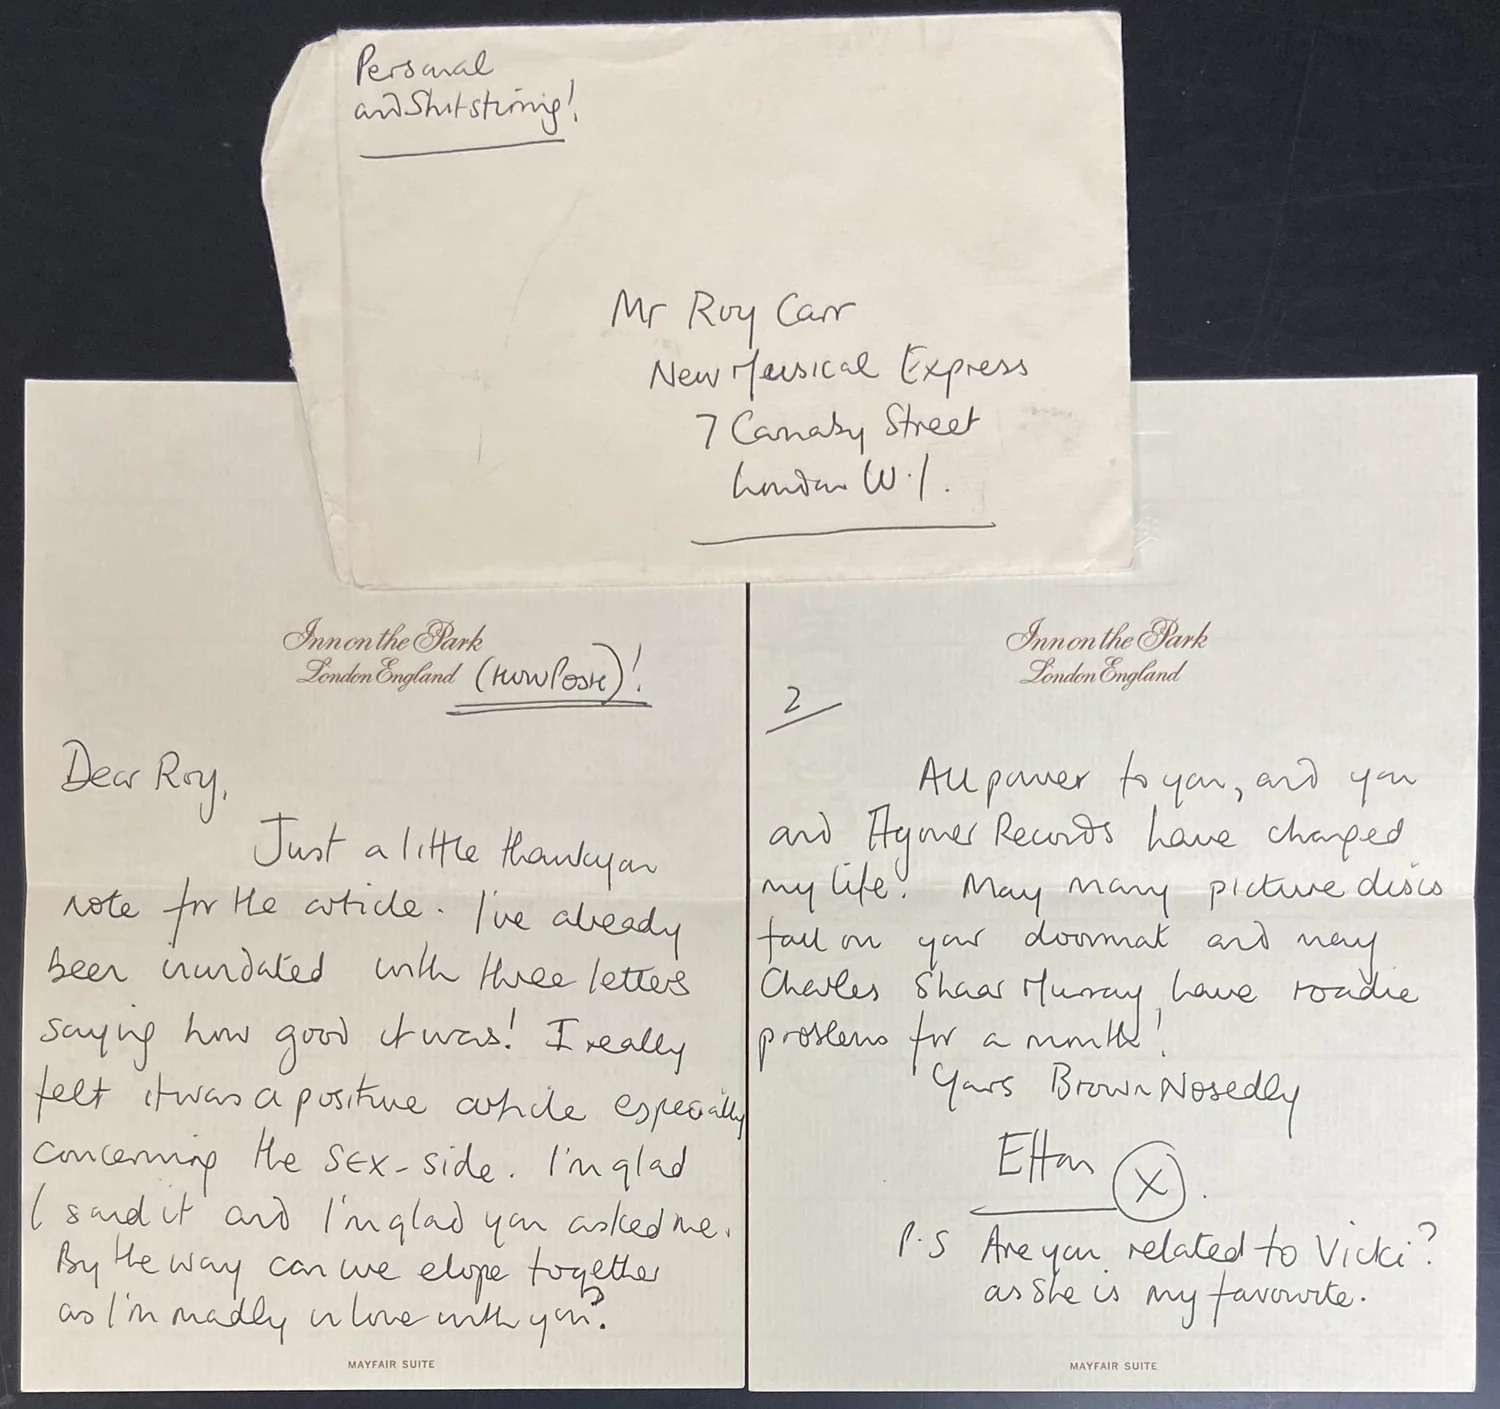 Personal
and Shitstirring!
Mr Roy Carr
New Musical Express
7 Carnaby Street
London W.1.
Inn on the Park
London England
(How Posh)!
Dear Roy,
Just a little thankyou
note for the article. I've already
been inundated with three letters
saying how good it was! I really
felt it was a positive article especially
concerning the SEX-side. I'm glad
I said it and I'm glad you asked me.
By the way can we elope together
as I'm madly in love with you?
MAYFAIR SUITE
Inn on the Park
London England
2
All power to you, and you
and Hyoner Records have changed
my life! May many picture discs
fall on your doormat and may
Charles Shaar Murray have roadie
problems for a month!
Yours BrownNosedly
Elton X.
P.S Are you related to Vicki?
as she is my favourite.
MAYFAIR SUITE